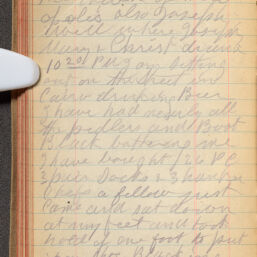 of olis also Joseph
Well where Joseph
Mary & Christ drank
10 20 PM I am sitting
out on the street in
Cairo drinking Beer
I have had nearly all
the pedlers and Boot
Black bothering me
I have bought 126 PC
3 pair Socks & 3 hanker
cheifs a fellow just
came and sat down
at my feet and took
hold of one foot to put